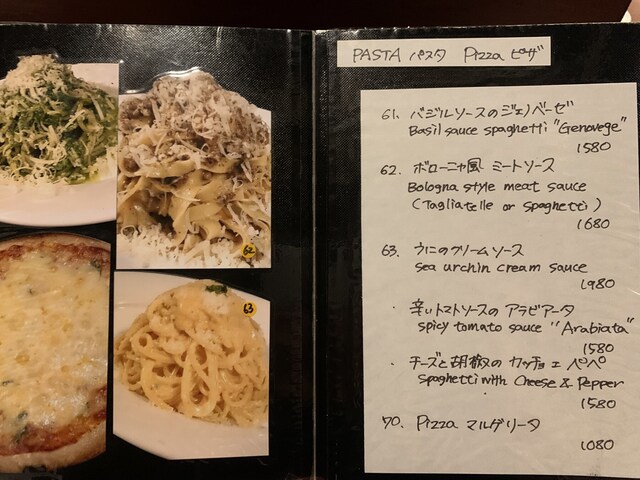 PASTA パスタ Pizza ピザ
61. バジルソースのジェノベーゼ
Basil sauce spaghetti "Genovege"
1580
62. ボローニャ風 ミートソース
Bologna style meat sauce
(Tagliatelle or spaghetti)
1680
63. ウニのクリームソース
sea urchin cream sauce
1980
・ 辛いトマトソースの アラビアータ
spicy tomato sauce "Arabiata"
1580
・ チーズと胡椒の カッチョ エ ペペ
spaghetti with Cheese & Pepper
1580
70. Pizza マルゲリータ
1080
62
63